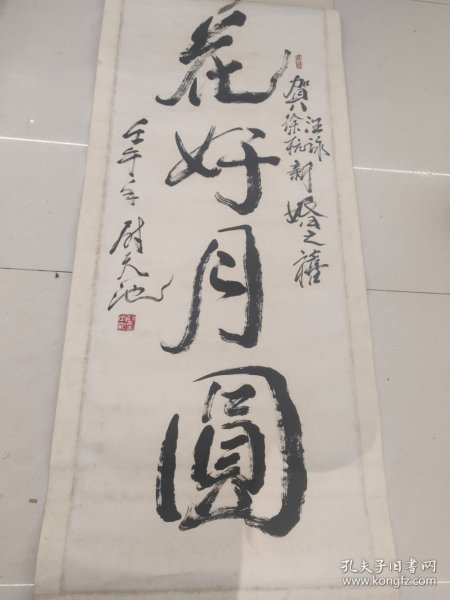 花好月圆
贺汪詠
徐杭新婚之禧
壬午年 尉天池
孔夫子旧书网
www.kongfz.com